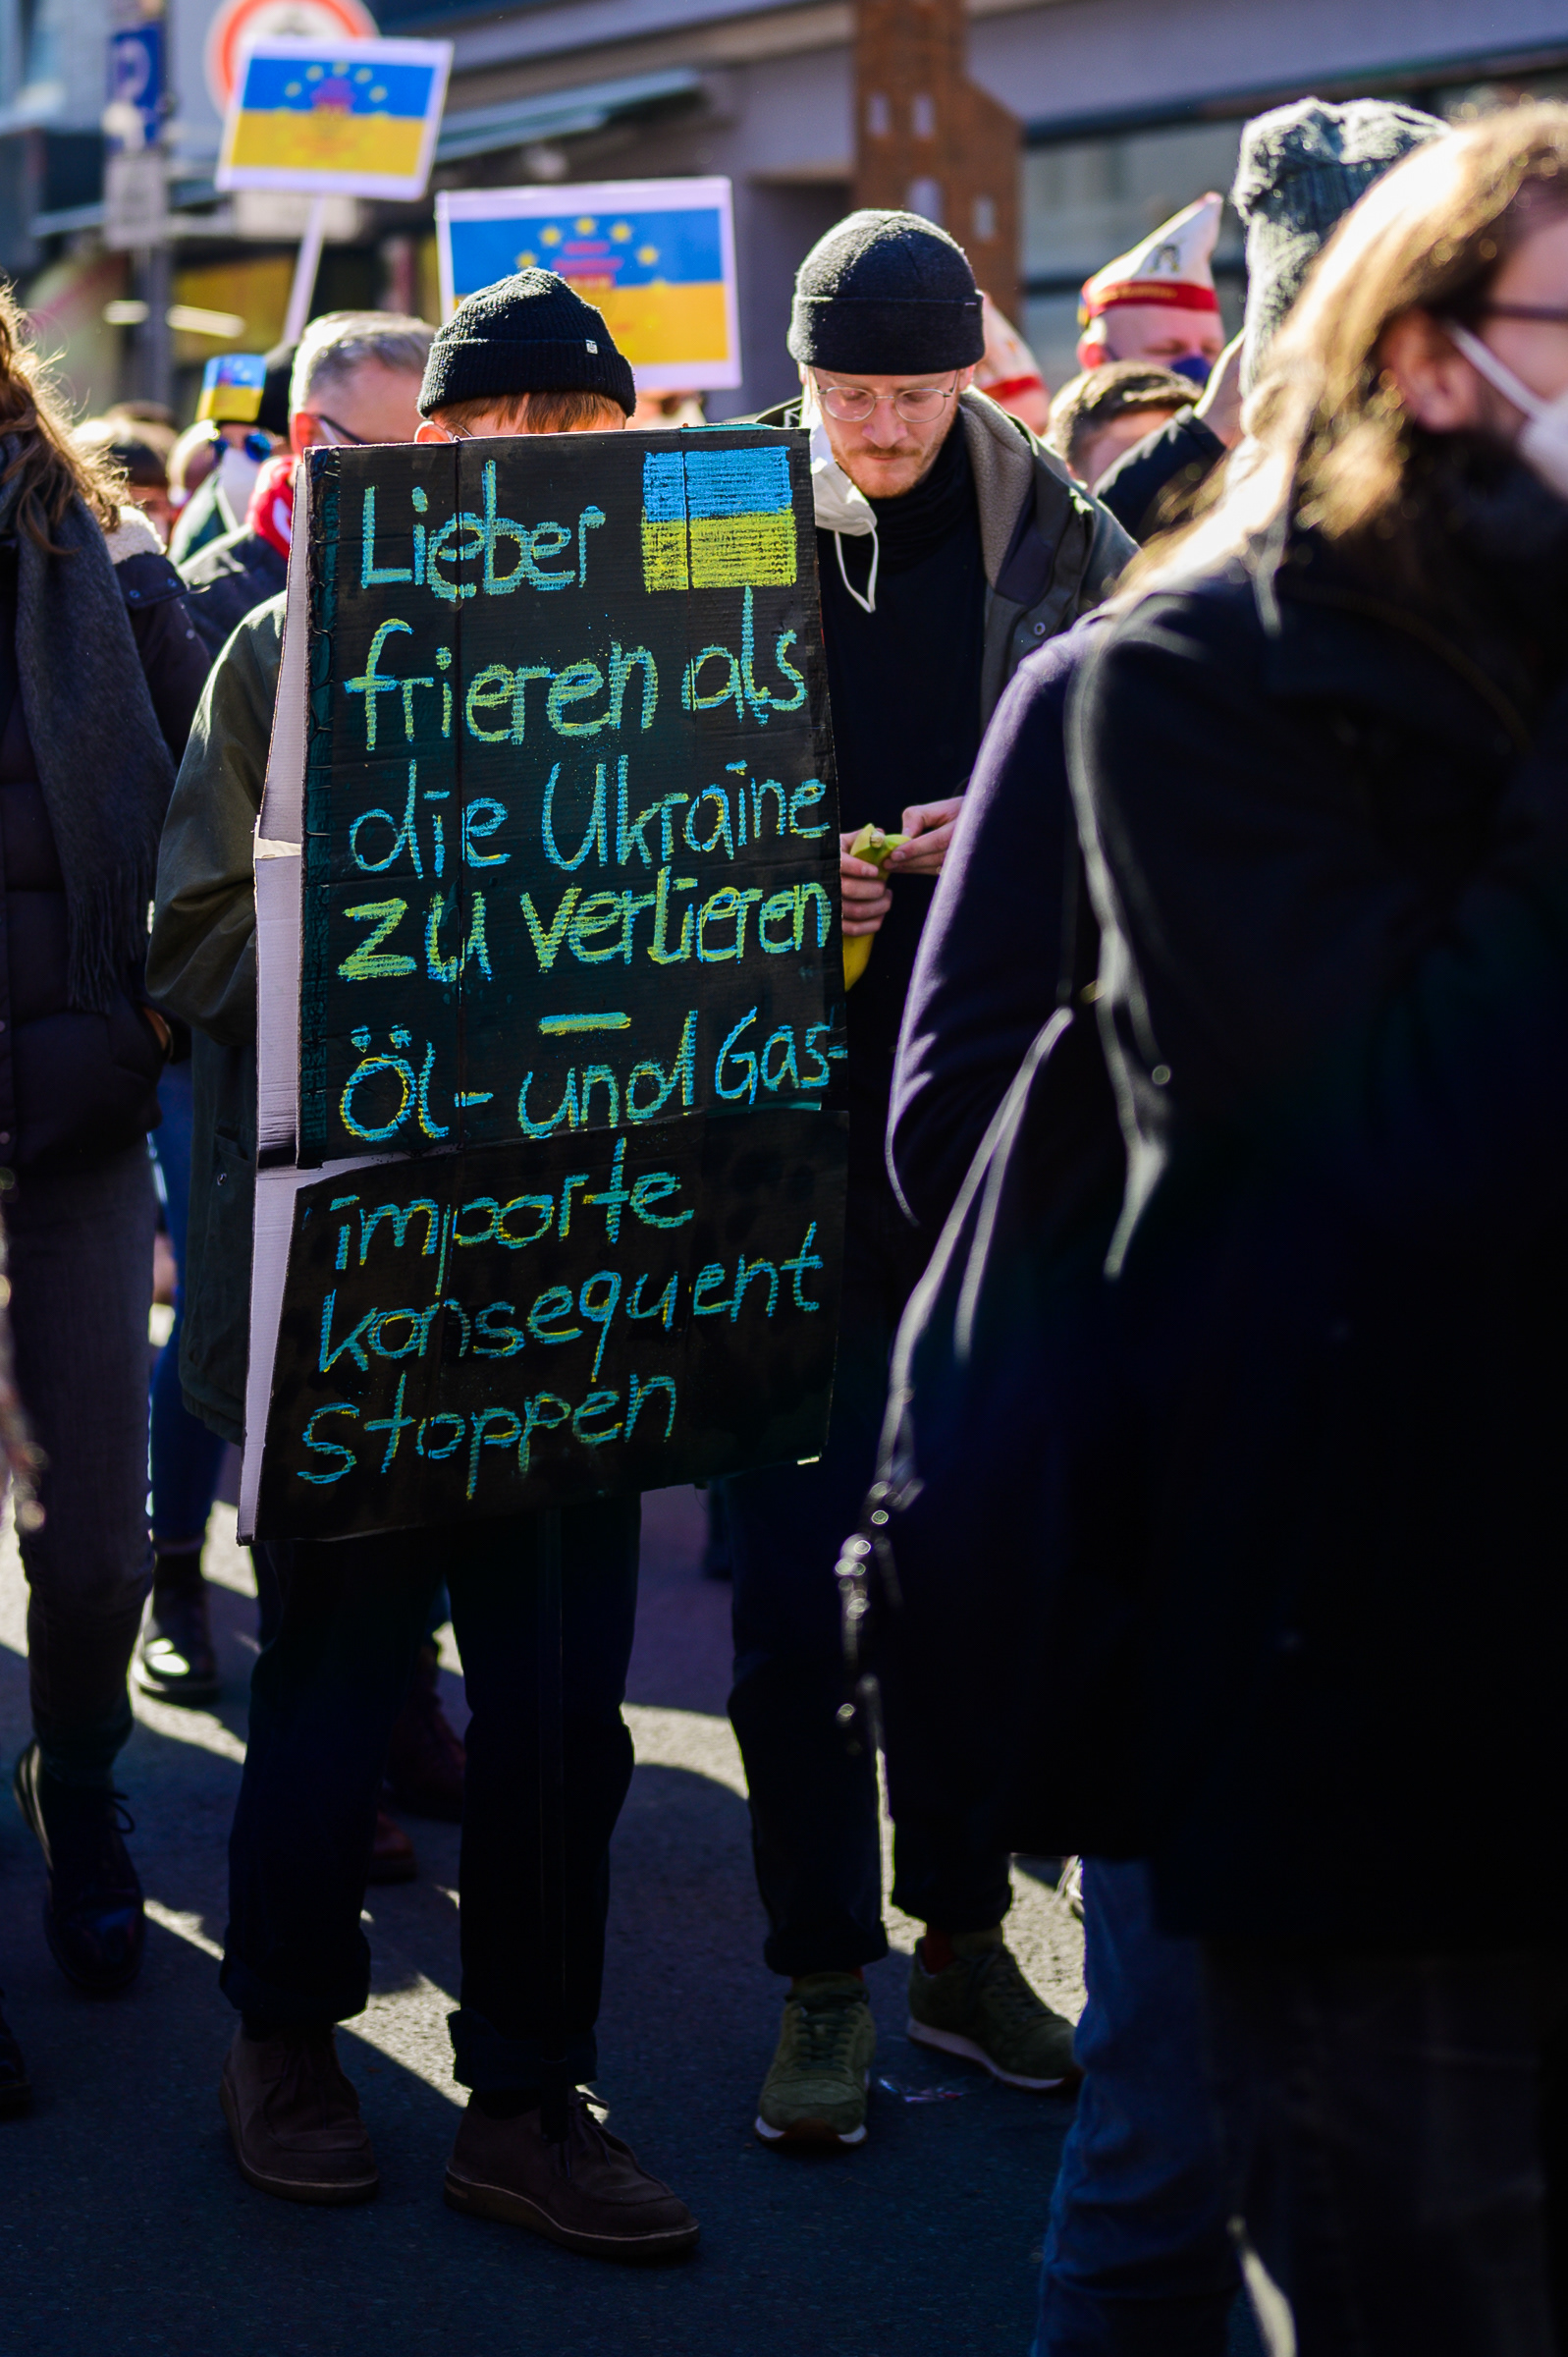 Lieber
frieren als
die Ukraine
zu verlieren
–
Öl- und Gas-
importe
konsequent
stoppen